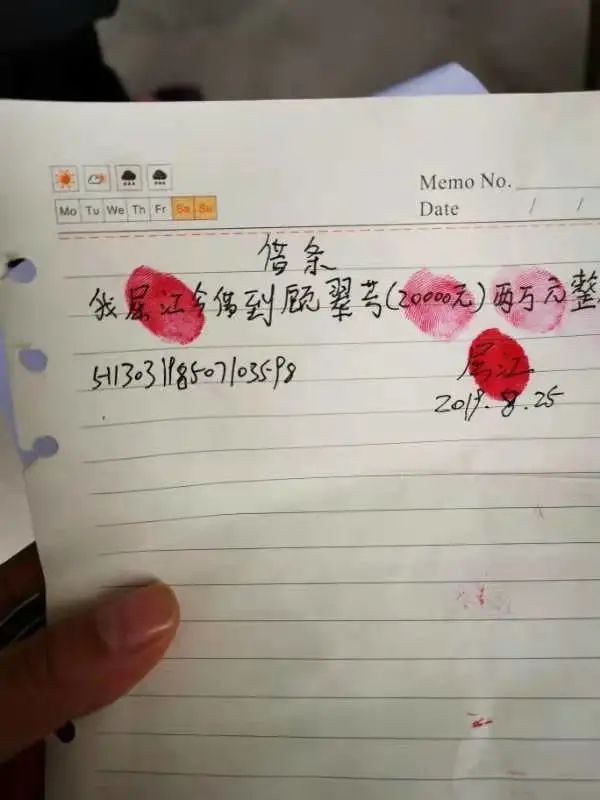 Memo No.
Mo Tu We Th Fr Sa Su
Date / /
借条
我屈江今借到顾翠芳(20000元)两万元整
511303198507103598
屈江
2019.8.25